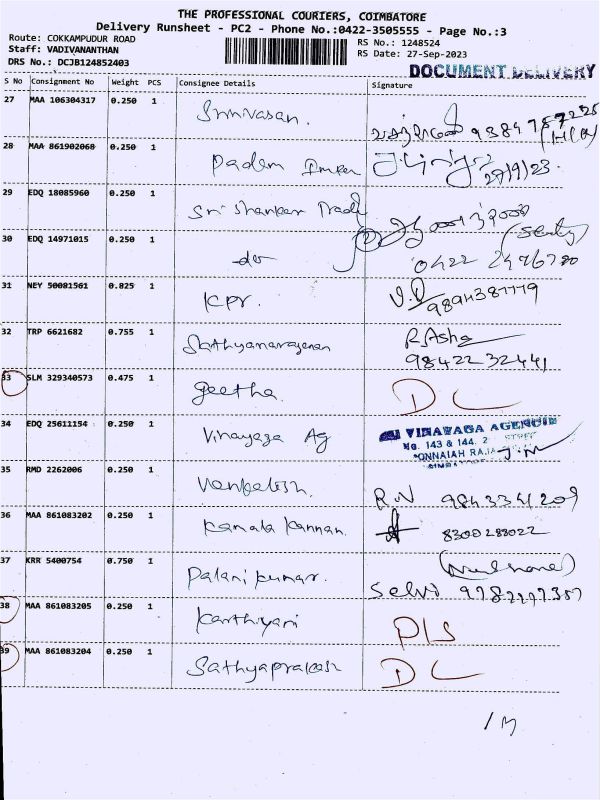 THE PROFESSIONAL COURIERS, COIMBATORE
Delivery Runsheet - PC2 - Phone No.:0422-3505555 - Page No.:3
Route: COKKAMPUDUR ROAD
Staff: VADIVANANTHAN
DRS No.: DCJB124852403
RS No.: 1248524
RS Date: 27-Sep-2023
DOCUMENT DELIVERY
S No Consignment No Weight PCS Consignee Details Signature
27 MAA 106304317 0.250 1 Srinivasan.
28 MAA 861902060 0.250 1 Padam 27/9/23.
29 EDQ 18085960 0.250 1 Sri Shankar
30 EDQ 14971015 0.250 1 do 0422 2476780
31 NEY 50081561 0.825 1 KPR. 9894387779
32 TRP 6621682 0.755 1 Sathyanarayanan R.Asha
9842232441
33 SLM 329340573 0.475 1 Geetha. DL
34 EDQ 25611154 0.250 1 Vinayaga Ag VINAYAGA AGENCIE
No. 143 & 144, 2 STREET
PONNAIAH RAJA
35 RMD 2262006 0.250 1 Venkatesh. R.N 9843341209
36 MAA 861083202 0.250 1 Kamala Kannan. 8300288022
37 KRR 5400754 0.750 1 Palani kumar. Selvi
38 MAA 861083205 0.250 1 Karthiyani DLS
39 MAA 861083204 0.250 1 Sathyaprakash DL